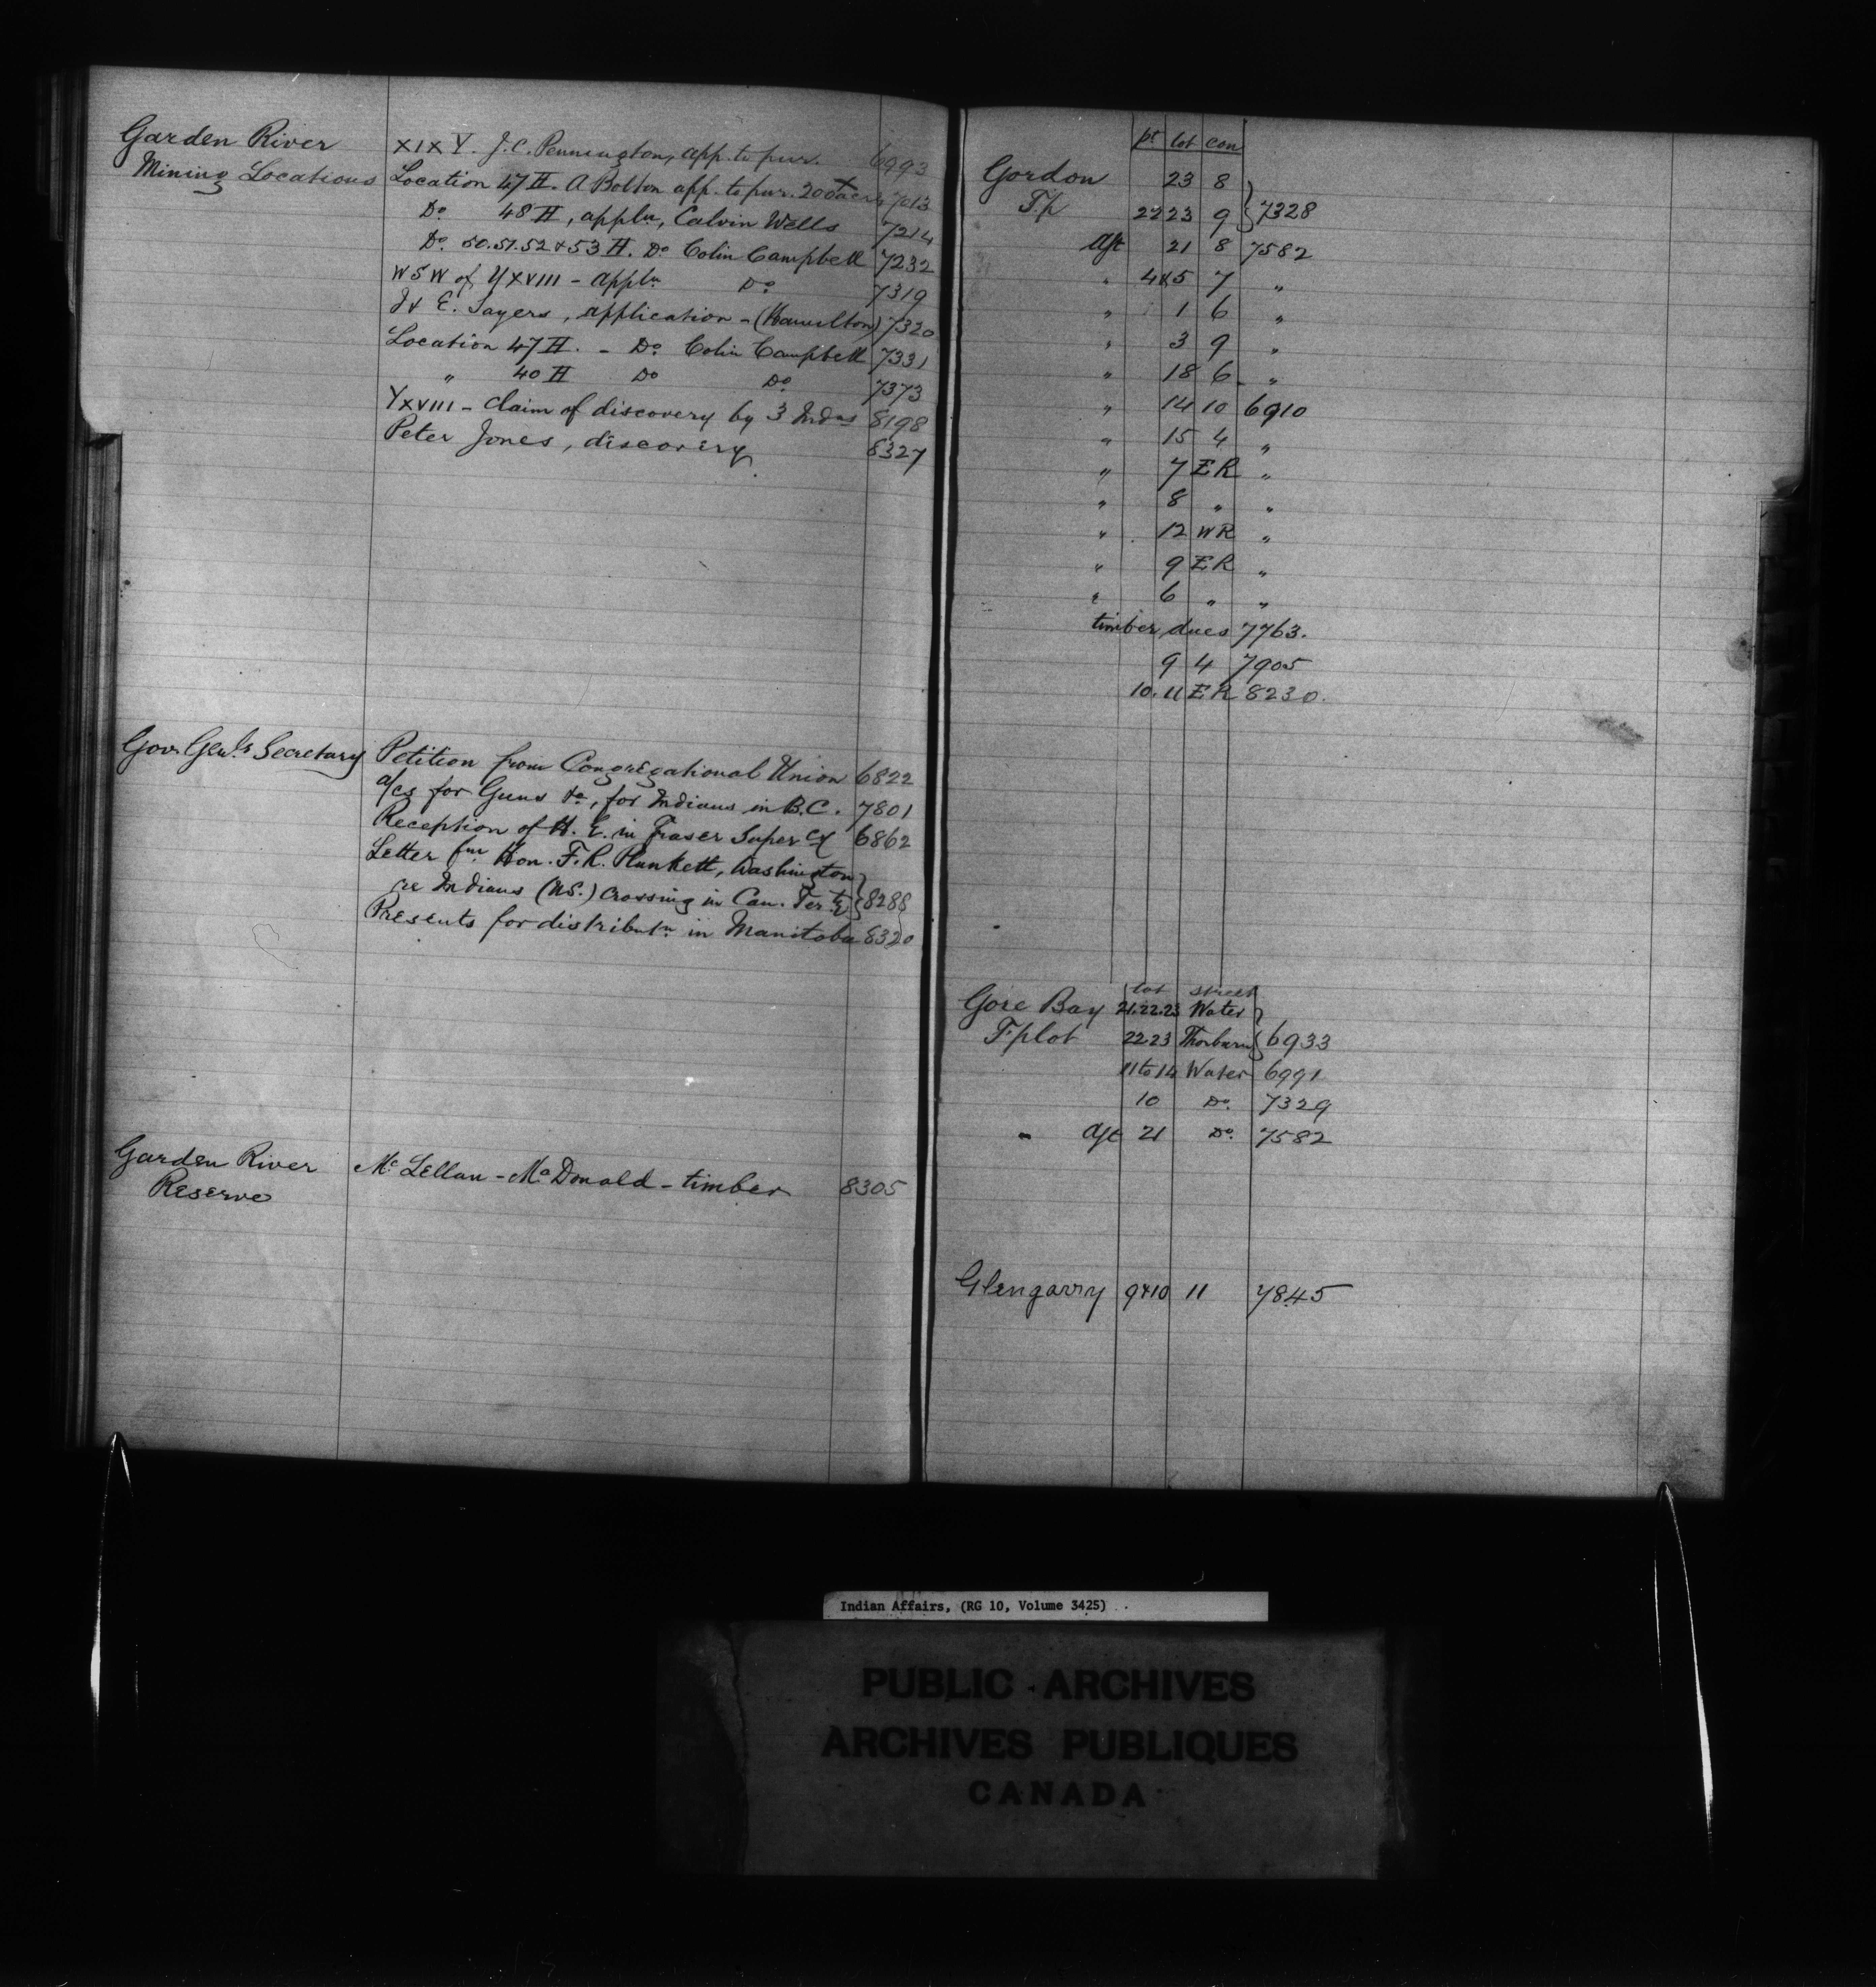 Garden River
Mining Locations
XIX Y. J.C. Pennington, app. to pur. 6993
Location 47 H. A Bolton app. to pur. 200 acres 7013
Do 48 H, appln, Calvin Wells 7214
Do. 50.51.52 & 53 H. Do Colin Campbell 7232
W S W of YXVIII - appln Do 7319
J & E. Sayers, application - (Hamilton) 7320
Location 47 H. - Do Colin Campbell 7331
" 40 H Do Do 7373
YXVIII - Claim of discovery by 3 Indns 8198
Peter Jones, discovery 8327
Gov. Genl's Secretary
Petition from Congregational Union 6822
a/cs for Guns &c, for Indians in B.C. 7801
Reception of H. E. in Fraser Supercy 6862
Letter fm Hon. F.R. Plunkett, Washington
re Indians (U.S.) crossing in Can. Terty } 8288
Presents for distributn in Manitoba 8320
Garden River
Reserve
McLellan - McDonald - timber 8305
pt lot con
Gordon 23 8
Tp 22 23 9 } 7328
Aft 21 8 7582
" 4&5 7 "
" 1 6 "
" 3 9 "
" 18 6 "
" 14 10 6910
" 15 4 "
" 7 E R "
" 8 " "
" 12 W R "
" 9 E R "
" 6 " "
timber dues 7763.
9 4 7905
10.11 E R 8230.
lot street
Gore Bay 21.22.23 Water
T. plot 22 23 Thorburn } 6933
11 to 14 Water 6991
10 Do. 7329
" Aft 21 Do. 7582
Glengarry 9&10 11 7845
Indian Affairs, (RG 10, Volume 3425)
PUBLIC ARCHIVES
ARCHIVES PUBLIQUES
CANADA